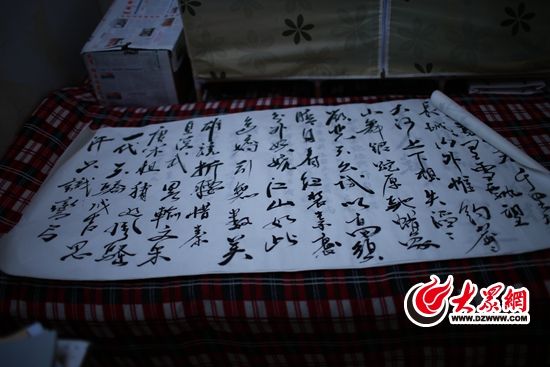 雪飘望
长城内外惟余莽
大河上下顿失滔
山舞银蛇原驰蜡象
欲与天公试比高须
晴日看红装素裹
分外妖娆江山如此
多娇引无数英
雄竞折腰惜秦
皇汉武略输文采
唐宗宋祖稍逊风骚
一代天骄成吉思
汗只识弯弓
大众网
WWW.DZWWW.COM